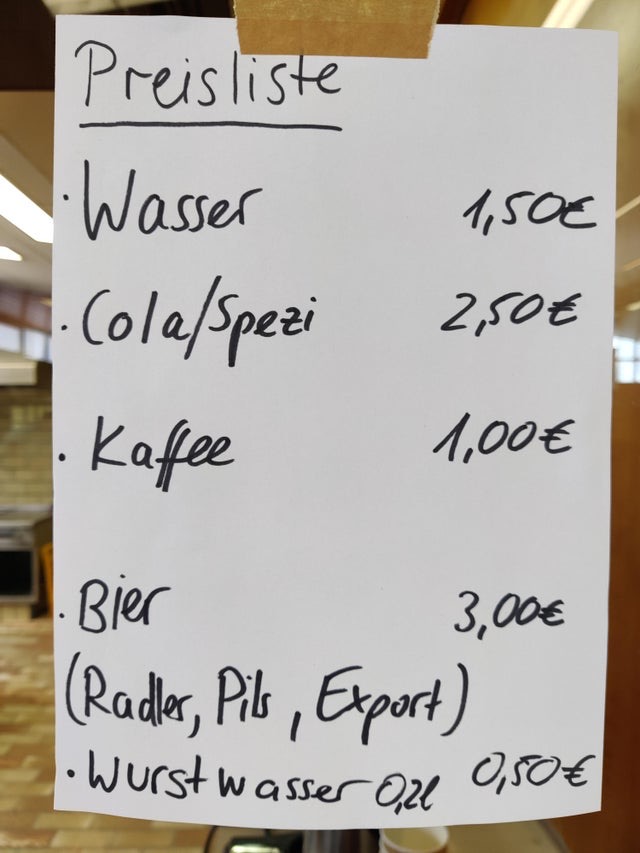 Preisliste
· Wasser 1,50€
· Cola/Spezi 2,50€
· Kaffee 1,00€
· Bier 3,00€
(Radler, Pils, Export)
· Wurstwasser 0,2l 0,50€